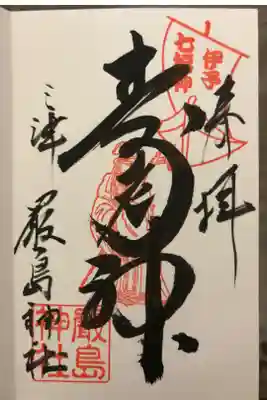 伊予
七福神
奉拝
寿老神
三津
厳島神社
厳島
神社